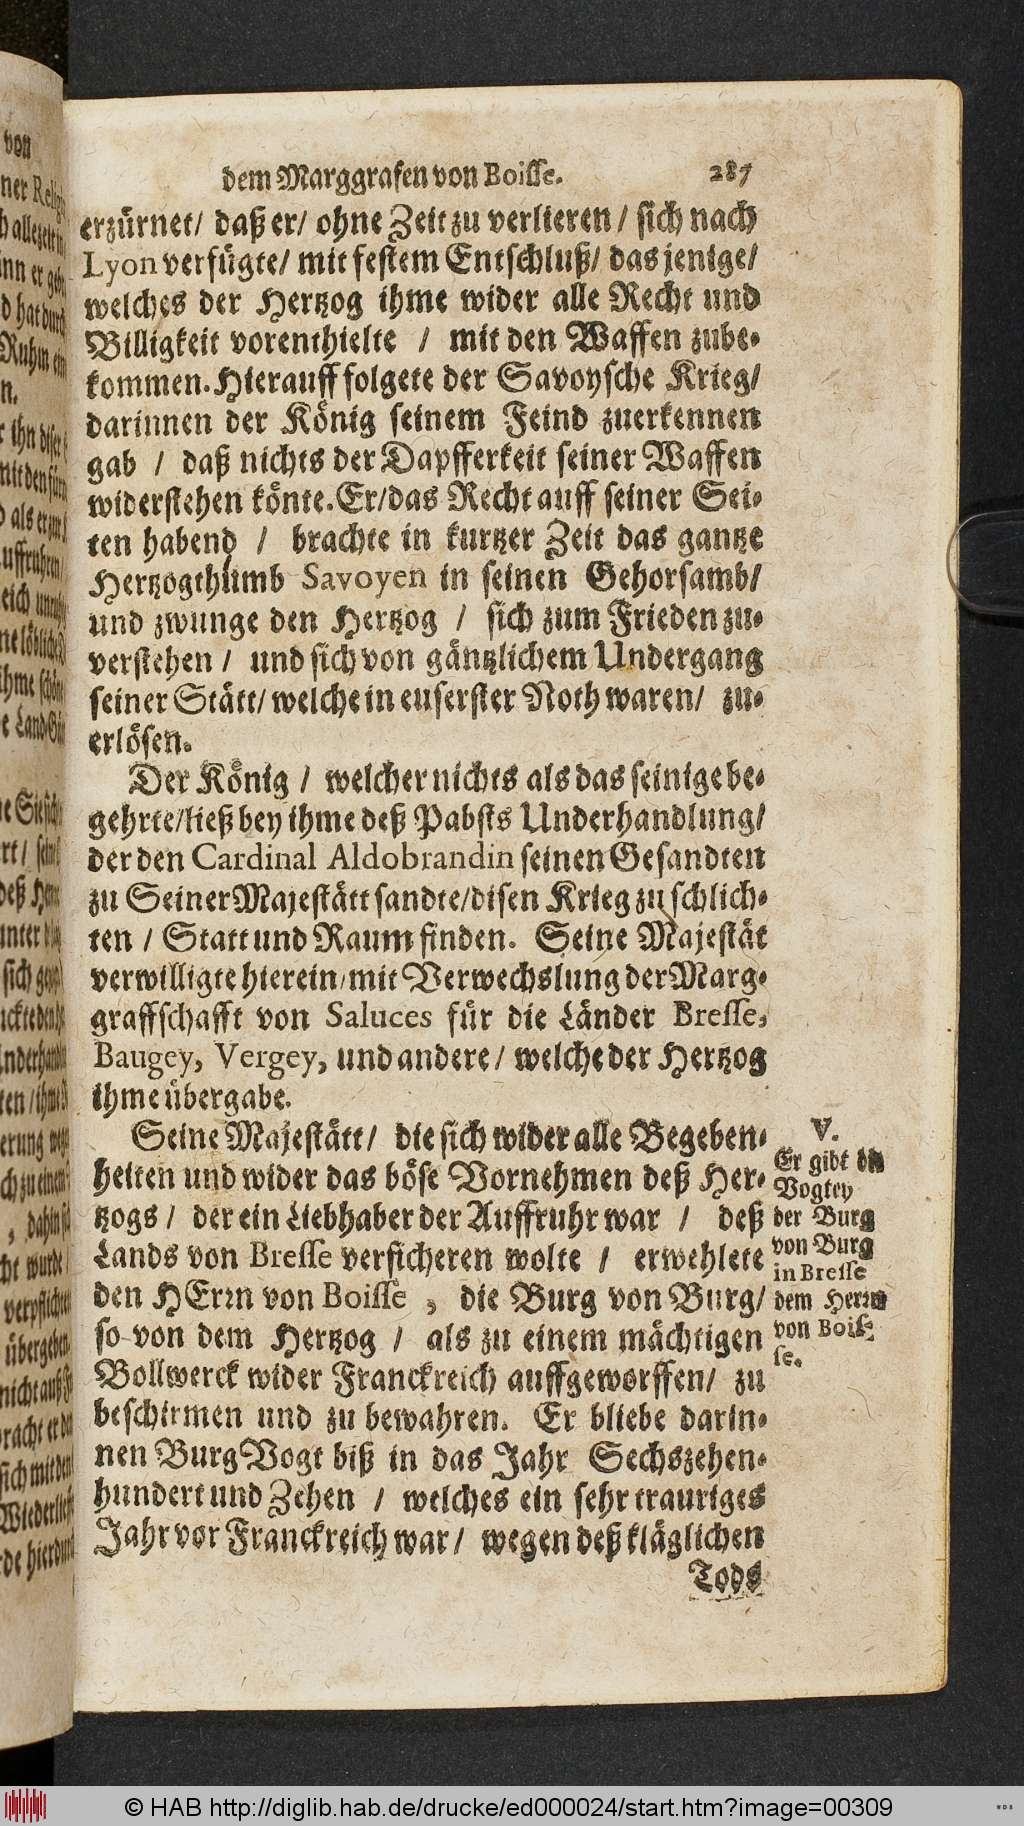 dem Marggrafen von Boisse. 287
erzürnet/ daß er/ ohne Zeit zu verlieren / sich nach
Lyon verfügte/ mit festem Entschluß/ das jenige/
welches der Hertzog ihme wider alle Recht und
Billigkeit vorenthielte / mit den Waffen zube-
kommen. Hierauff folgete der Savoysche Krieg/
darinnen der König seinem Feind zuerkennen
gab / daß nichts der Dapfferkeit seiner Waffen
widerstehen könte. Er/ das Recht auff seiner Sei-
ten habend / brachte in kurtzer Zeit das gantze
Hertzogthumb Savoyen in seinen Gehorsamb/
und zwunge den Hertzog / sich zum Frieden zu-
verstehen / und sich von gäntzlichem Undergang
seiner Stätt/ welche in euserster Noth waren/ zu-
erlösen.
Der König / welcher nichts als das seinige be-
gehrte/ ließ bey ihme deß Pabsts Underhandlung/
der den Cardinal Aldobrandin seinen Gesandten
zu Seiner Majestätt sandte/ disen Krieg zu schlich-
ten / Statt und Raum finden. Seine Majestät
verwilligte hierein/ mit Verwechslung der Marg-
graffschafft von Saluces für die Länder Bresse,
Baugey, Vergey, und andere/ welche der Hertzog
ihme übergabe.
Seine Majestätt/ die sich wider alle Begeben-
heiten und wider das böse Vornehmen deß Her-
tzogs / der ein Liebhaber der Auffruhr war / deß
Lands von Bresse versicheren wolte / erwehlete
den HErrn von Boisse, die Burg von Burg/
so von dem Hertzog / als zu einem mächtigen
Bollwerck wider Franckreich auffgeworffen/ zu
beschirmen und zu bewahren. Er bliebe darin-
nen Burg Vogt biß in das Jahr Sechszehen-
hundert und Zehen / welches ein sehr trauriges
Jahr vor Franckreich war/ wegen deß kläglichen
Tods
V.
Er gibt die
Vogtey
der Burg
von Burg
in Bresse
dem Herrn
von Bois-
se.
© HAB http://diglib.hab.de/drucke/ed000024/start.htm?image=00309